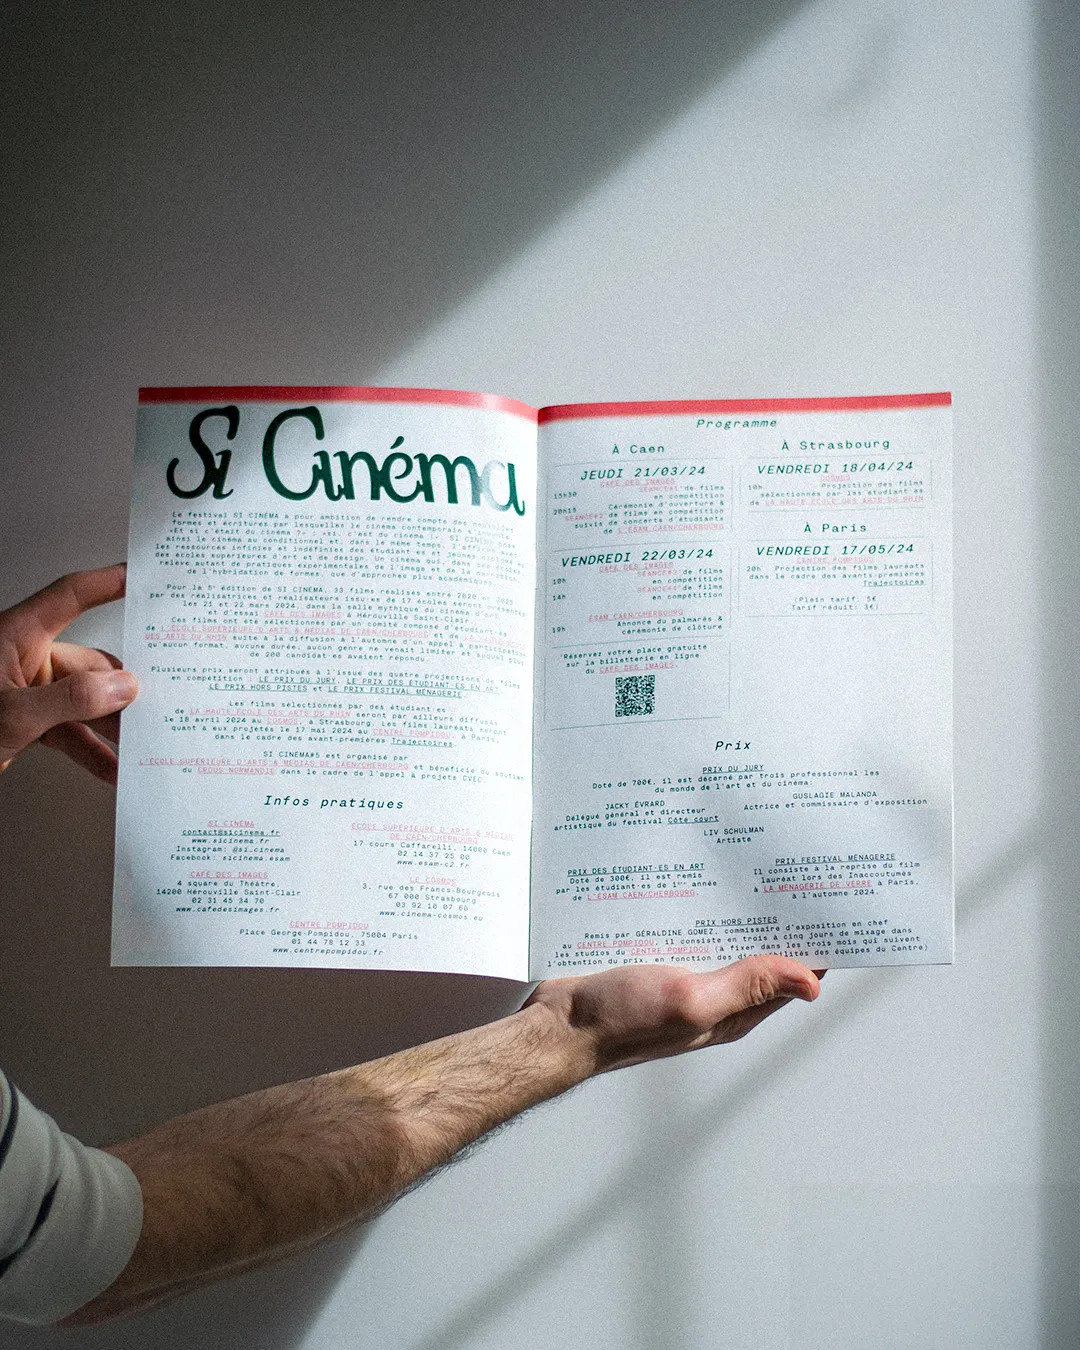 Si Cinéma
Le festival SI CINÉMA a pour ambition de rendre compte des nouvelles
formes et écritures par lesquelles le cinéma contemporain s'invente.
«Et si c'était du cinéma ?» : «si, c'est du cinéma !». SI CINÉMA
ainsi le cinéma au conditionnel et, dans le même temps, l'affirme avec
les ressources infinies et indéfinies des étudiant·es et jeunes
des écoles supérieures d'art et de design. Un cinéma qui, dans
relève autant de pratiques expérimentales de l'image et de la narration,
de l'hybridation de formes, que d'approches plus académiques.
Pour la 5e édition de SI CINÉMA, 33 films réalisés entre 2020 et 2023
par des réalisatrices et réalisateurs issu·es de 17 écoles seront présentés
les 21 et 22 mars 2024, dans la salle mythique du cinéma d'art
et d'essai CAFÉ DES IMAGES à Hérouville Saint-Clair.
Ces films ont été sélectionnés par un comité composé d'étudiant·es
de L'ÉCOLE SUPÉRIEURE D'ARTS & MÉDIAS DE CAEN/CHERBOURG et de
DES ARTS DU RHIN suite à la diffusion à l'automne d'un appel à participation
qu'aucun format, aucune durée, aucun genre ne venait limiter et auquel plus
de 200 candidat·es avaient répondu.
Plusieurs prix seront attribués à l'issue des quatre projections de films
en compétition : LE PRIX DU JURY, LE PRIX DES ÉTUDIANT·ES EN ART,
LE PRIX HORS PISTES et LE PRIX FESTIVAL MÉNAGERIE.
Les films sélectionnés par des étudiant·es
de LA HAUTE ÉCOLE DES ARTS DU RHIN seront par ailleurs diffusés
le 18 avril 2024 au COSMOS, à Strasbourg. Les films lauréats seront
quant à eux projetés le 17 mai 2024 au CENTRE POMPIDOU, à Paris,
dans le cadre des avant-premières Trajectoires.
SI CINÉMA#5 est organisé par
L'ÉCOLE SUPÉRIEURE D'ARTS & MÉDIAS DE CAEN/CHERBOURG et bénéficie du soutien
du CROUS NORMANDIE dans le cadre de l'appel à projets CVEC.
Infos pratiques
SI CINÉMA
contact@sicinema.fr
www.sicinema.fr
Instagram: @si.cinema
Facebook: sicinema.esam
CAFÉ DES IMAGES
4 square du Théâtre,
14200 Hérouville Saint-Clair
02 31 45 34 70
www.cafedesimages.fr
ÉCOLE SUPÉRIEURE D'ARTS & MÉDIAS
DE CAEN/CHERBOURG
17 cours Caffarelli, 14000 Caen
02 14 37 25 00
www.esam-c2.fr
LE COSMOS
3, rue des Francs-Bourgeois
67 000 Strasbourg
03 92 10 07 69
www.cinema-cosmos.eu
CENTRE POMPIDOU
Place George-Pompidou, 75004 Paris
01 44 78 12 33
www.centrepompidou.fr
Programme
À Caen
JEUDI 21/03/24
CAFÉ DES IMAGES
15h30 SÉANCE#1 de films
en compétition
20h15 Cérémonie d'ouverture &
SÉANCE#2 de films en compétition
suivis de concerts d'étudiants
de L'ÉSAM CAEN/CHERBOURG
VENDREDI 22/03/24
CAFÉ DES IMAGES
10h SÉANCE#3 de films
en compétition
14h SÉANCE#4 de films
en compétition
ÉSAM CAEN/CHERBOURG
19h Annonce du palmarès &
cérémonie de clôture
Réservez votre place gratuite
sur la billetterie en ligne
du CAFÉ DES IMAGES.
À Strasbourg
VENDREDI 18/04/24
COSMOS
10h Projection des films
sélectionnés par les étudiant·es
de LA HAUTE ÉCOLE DES ARTS DU RHIN
À Paris
VENDREDI 17/05/24
CENTRE POMPIDOU
20h Projection des films lauréats
dans le cadre des avants-premières
Trajectoires
(Plein tarif: 5€
Tarif réduit: 3€)
Prix
PRIX DU JURY
Doté de 700€, il est décerné par trois professionnel·les
du monde de l'art et du cinéma:
JACKY ÉVRARD
Délégué général et directeur
artistique du festival Côté court
GUSLAGIE MALANDA
Actrice et commissaire d'exposition
LIV SCHULMAN
Artiste
PRIX DES ÉTUDIANT·ES EN ART
Doté de 300€, il est remis
par les étudiant·es de 1ère année
de L'ÉSAM CAEN/CHERBOURG.
PRIX FESTIVAL MÉNAGERIE
Il consiste à la reprise du film
lauréat lors des Inaccoutumés
à LA MÉNAGERIE DE VERRE à Paris,
à l'automne 2024.
PRIX HORS PISTES
Remis par GÉRALDINE GOMEZ, commissaire d'exposition en chef
au CENTRE POMPIDOU, il consiste en trois à cinq jours de mixage dans
les studios du CENTRE POMPIDOU (à fixer dans les trois mois qui suivent
l'obtention du prix, en fonction des disponibilités des équipes du Centre)